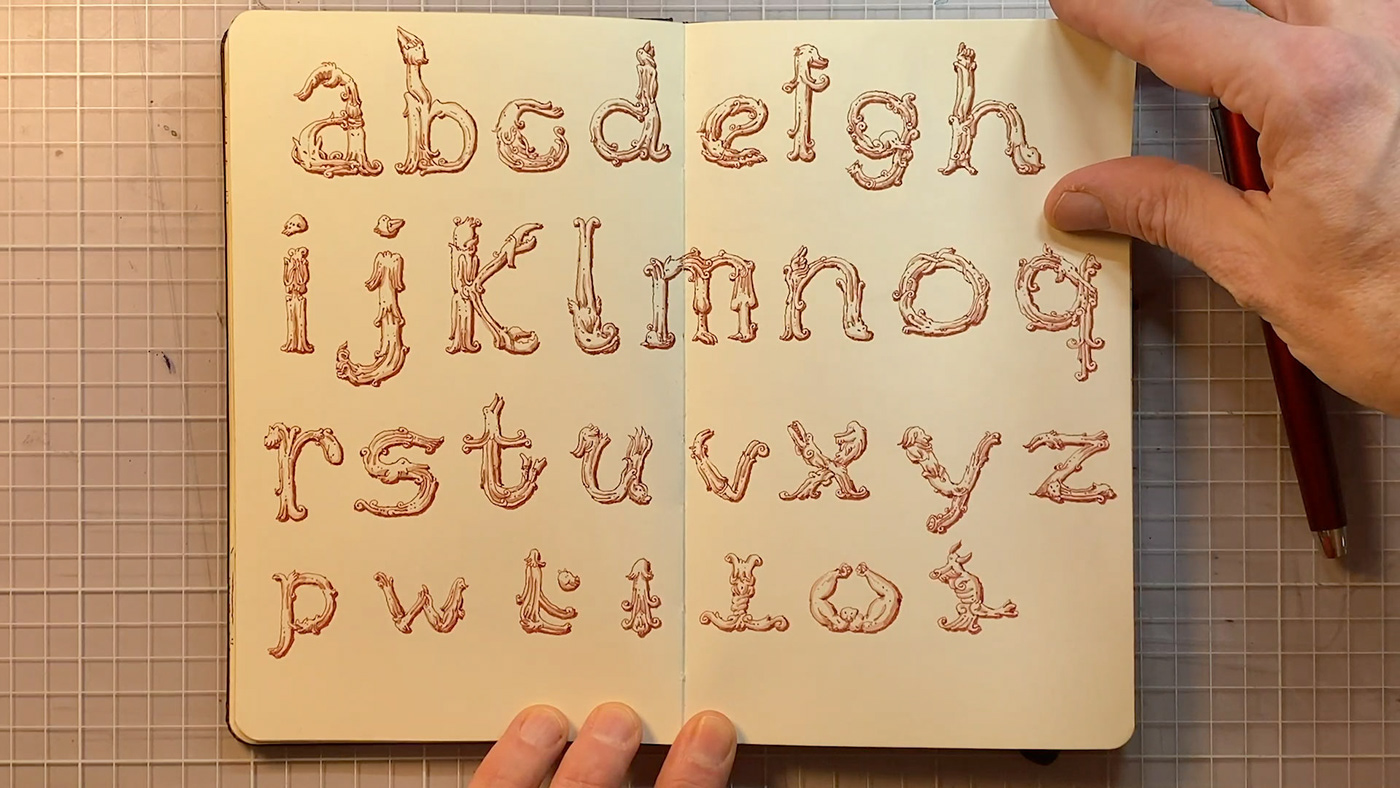 a b c d e f g h
i j k l m n o q
r s t u v x y z
p w